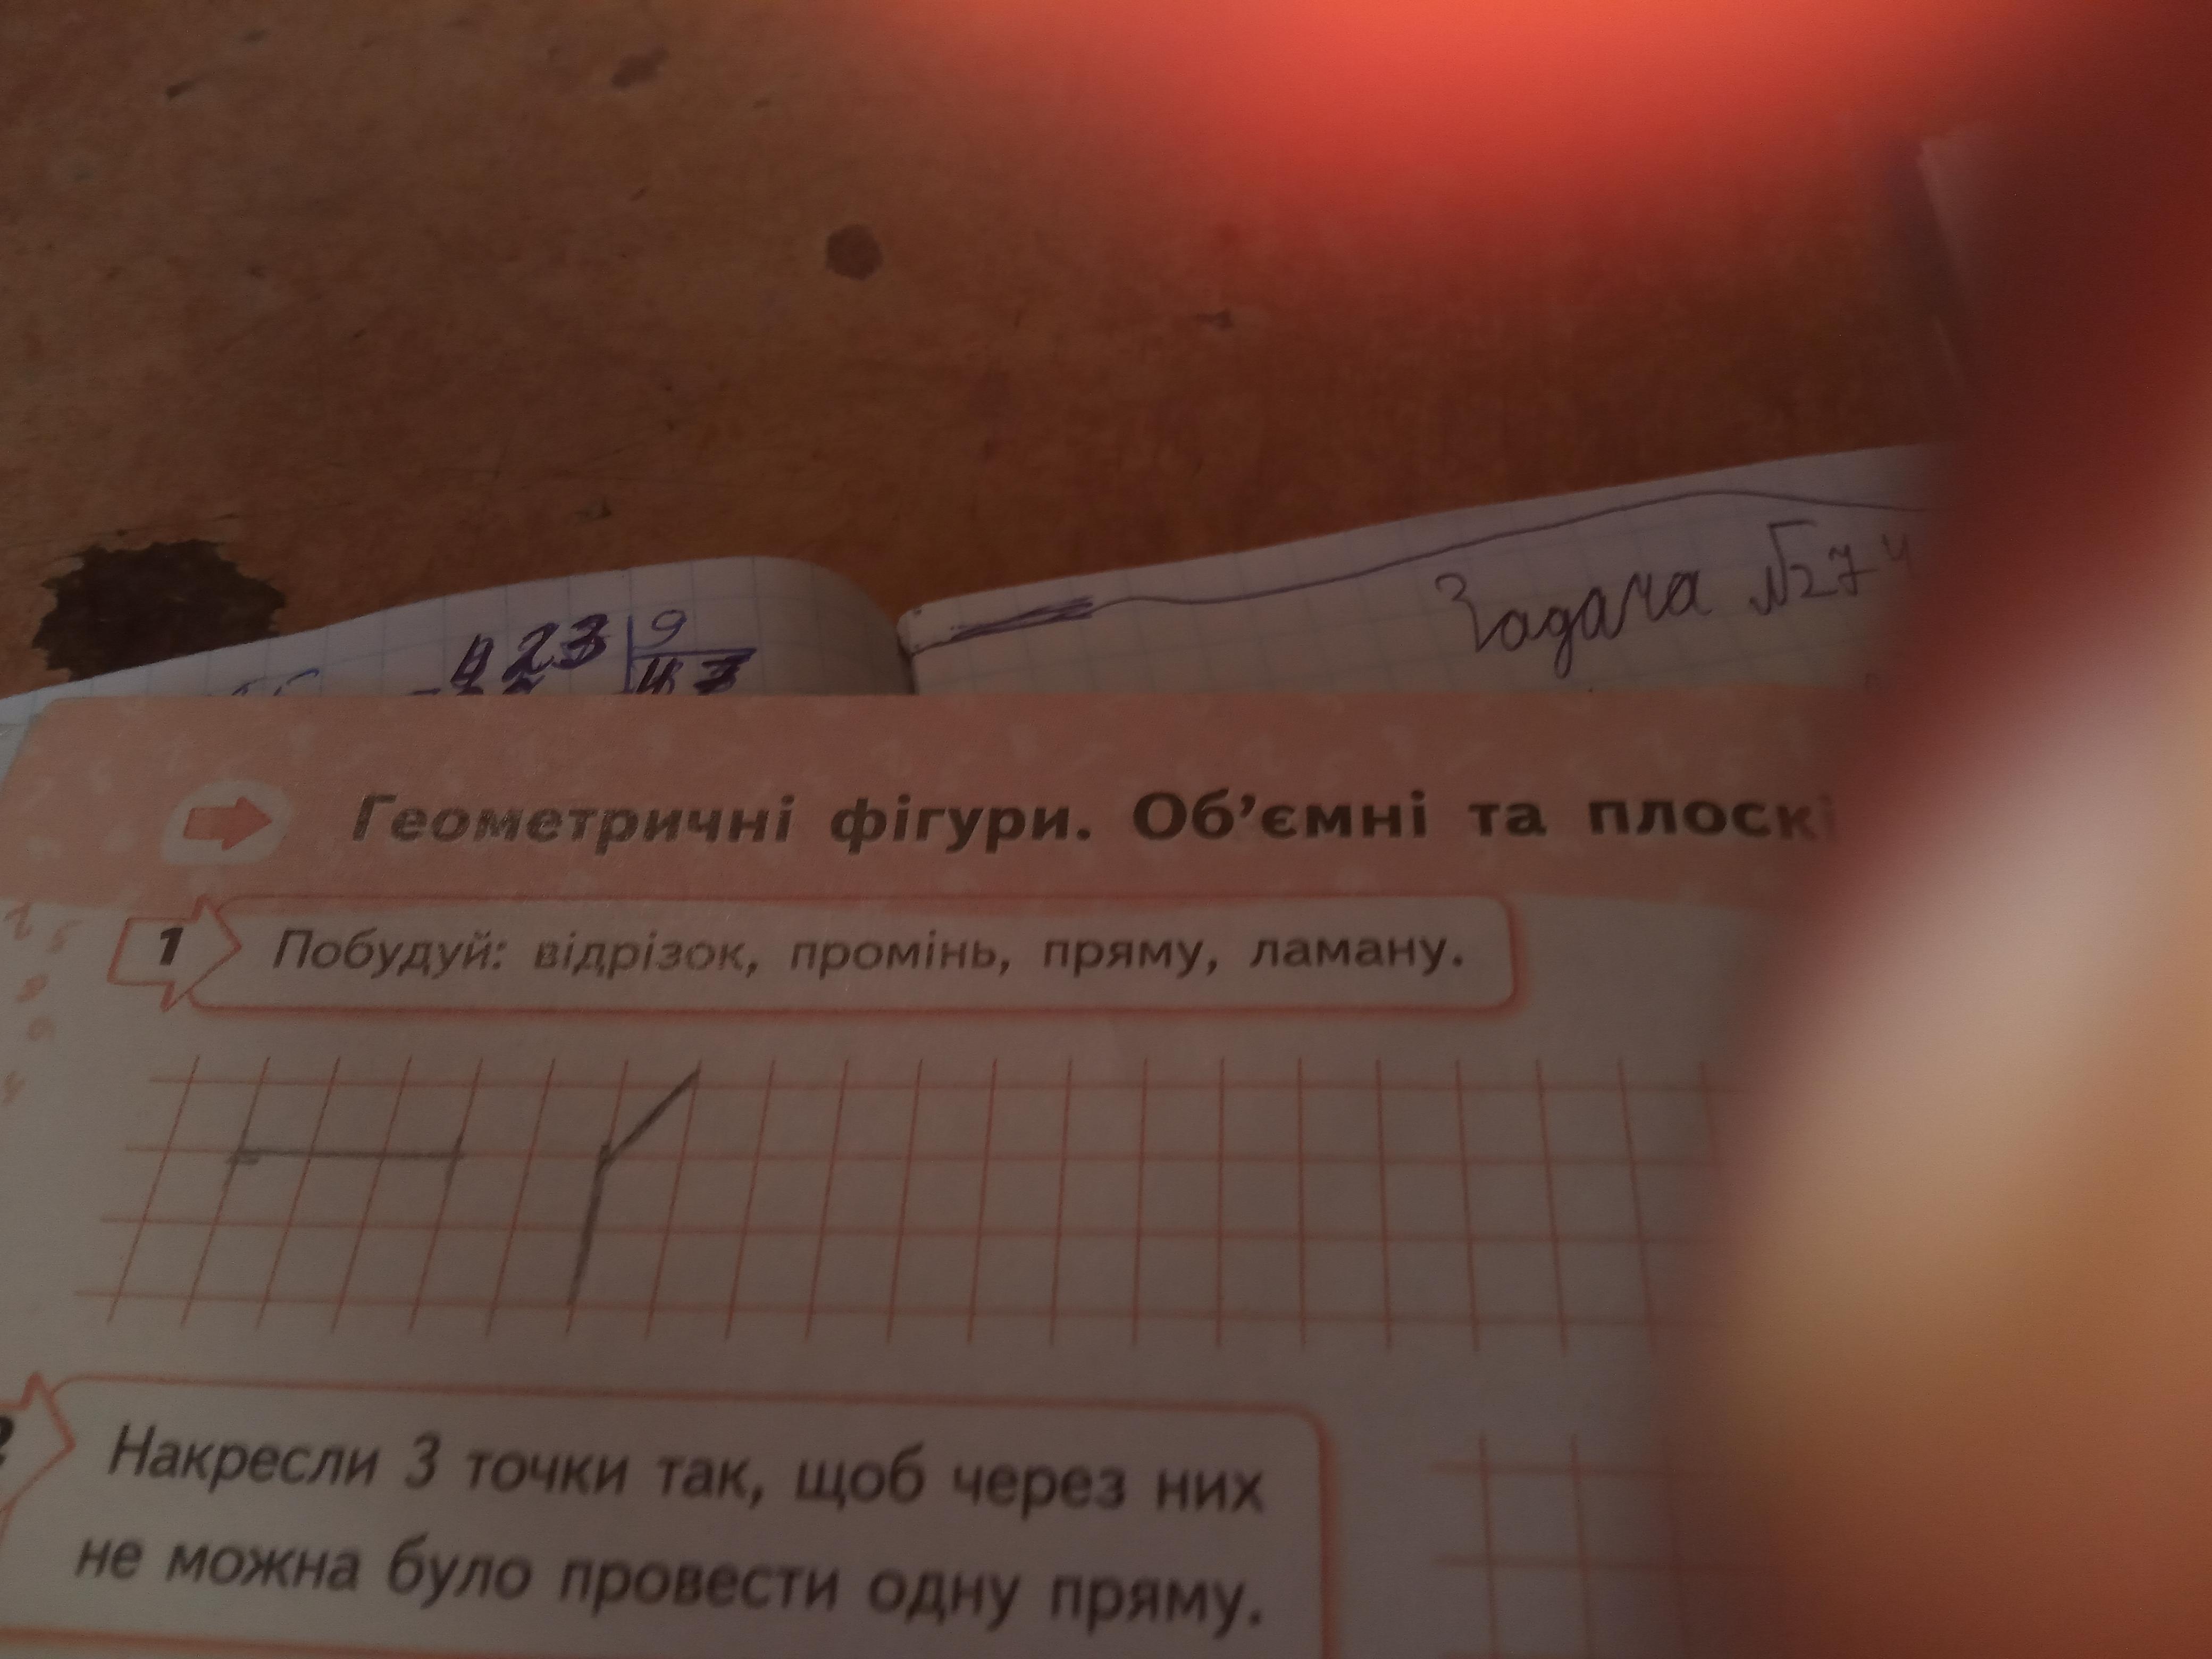 423 9
47
Задача №27
Геометричні фігури. Об'ємні та плоскі
1 Побудуй: відрізок, промінь, пряму, ламану.
2 Накресли 3 точки так, щоб через них
не можна було провести одну пряму.